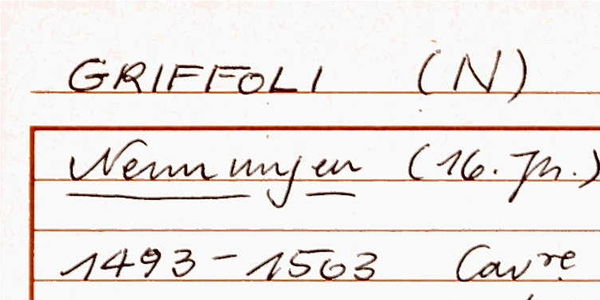 GRIFFOLI (N)
Nennungen (16. Jh.)
1493 - 1503 Cav.re